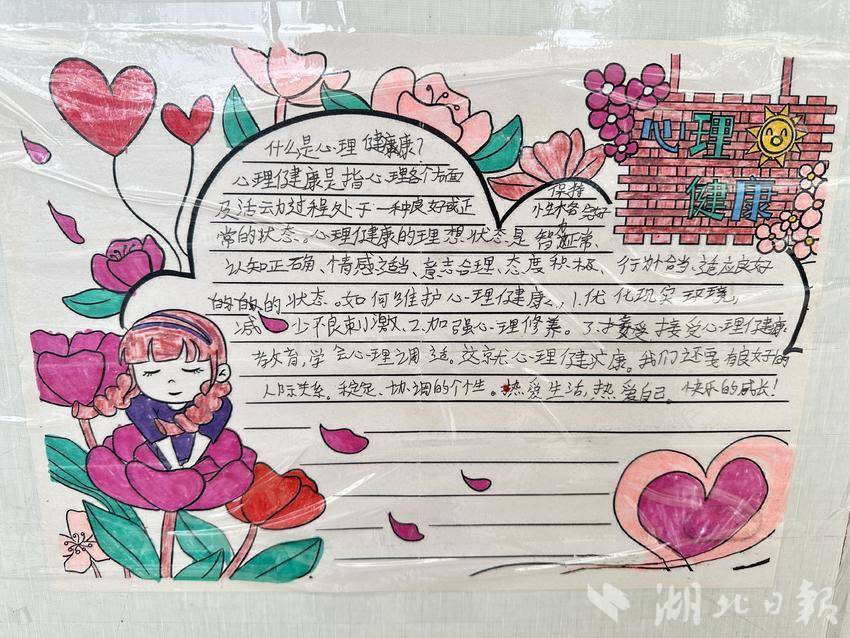 心理
健康
什么是心理健康?
心理健康是指心理各个方面
及活动过程处于一种良好或正
保持
性格
常的状态。心理健康的理想状态是 智力正常、
认知正确、情感适当、意志合理、态度积极、行为恰当、适应良好
的的的的状态。如何维护心理健康、1.优化现实环境,
减少不良刺激、2.加强心理修养。3.接受接受心理健康
教育,学会心理调适。这就是心理健康。我们还要有良好的
人际关系。稳定、协调的个性。热爱生活,热爱自己 快乐的成长!
湖北日報